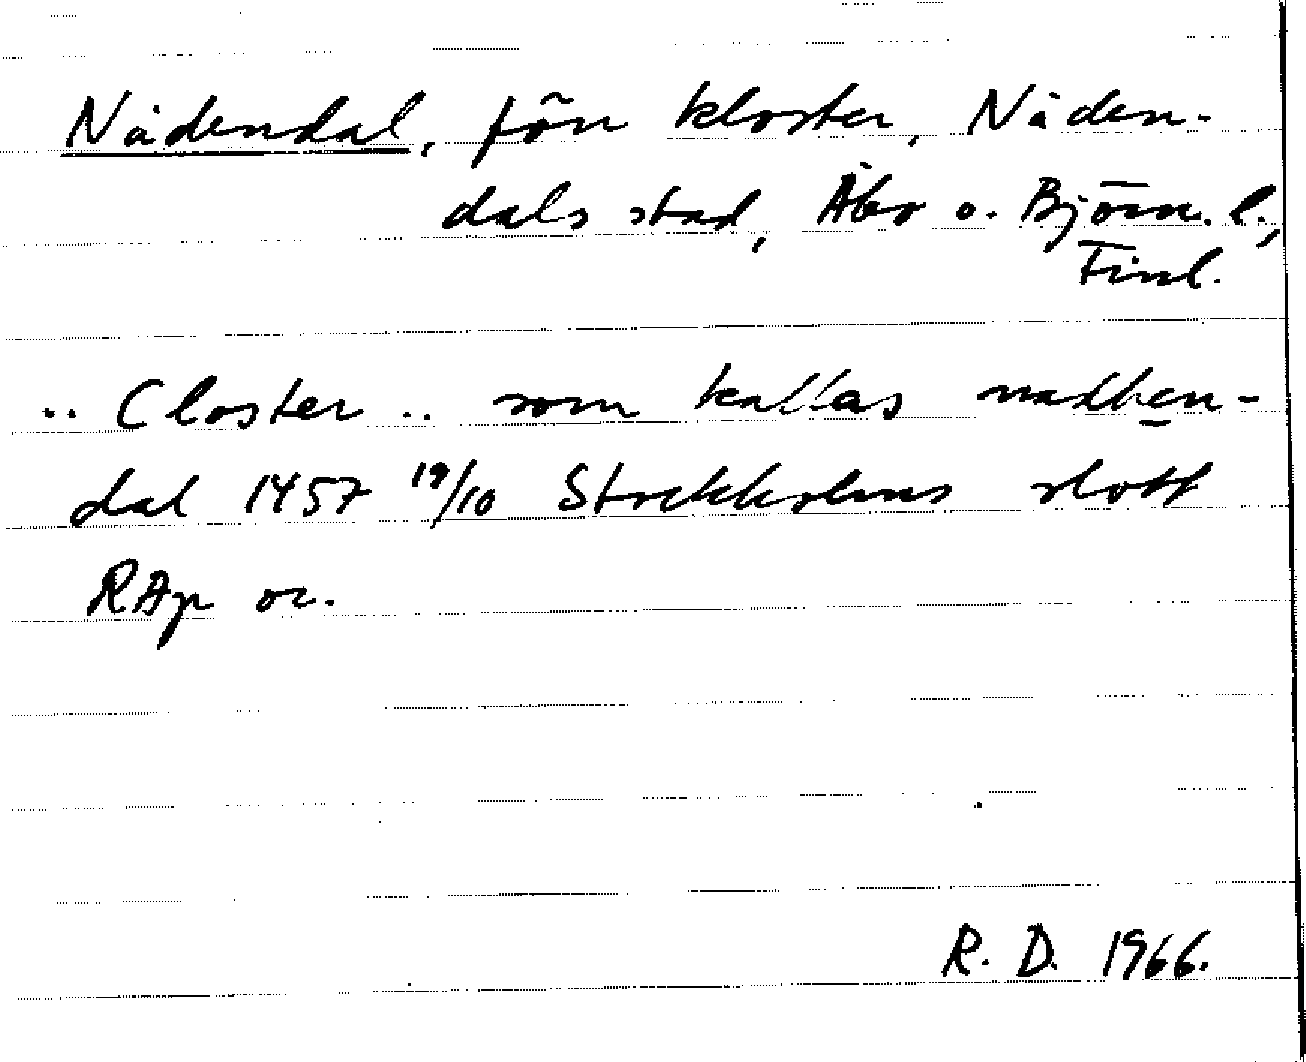 Nådendal, förr kloster, Nåden-
dals stad, Åbo o. Björn. l.,
Finl.
.. Closter .. som kallas nadhen-
dal 1457 19/10 Stockholms slott
RAp or.
R. D. 1966.